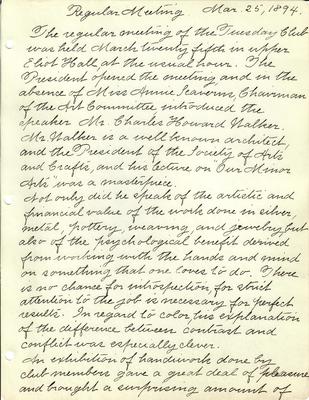 Regular Meeting Mar. 25, 1894.
The regular meeting of the Tuesday Club
was held March twenty fifth in upper
Eliot Hall at the usual hour. The
President opened the meeting, and in the
absence of Miss Annie Seaverns, Chairman
of the Art Committee introduced the
speaker Mr. Charles Howard Walker.
Mr. Walker is a well known architect,
and the President of the Society of Arts
and Crafts, and his lecture on "Our Minor
Arts" was a masterpiece.
Not only did he speak of the artistic and
financial value of the work done in silver,
metal, pottery, weaving, and jewelry but
also of the psychological benefit derived
from working with the hands and mind
on something that one loves to do. There
is no chance for introspection for strict
attention to the job is necessary for perfect
results. In regard to color, his explanation
of the difference between contrast and
conflict was especially clever.
An exhibition of handiwork done by
club members gave a great deal of pleasure
and brought a surprising amount of